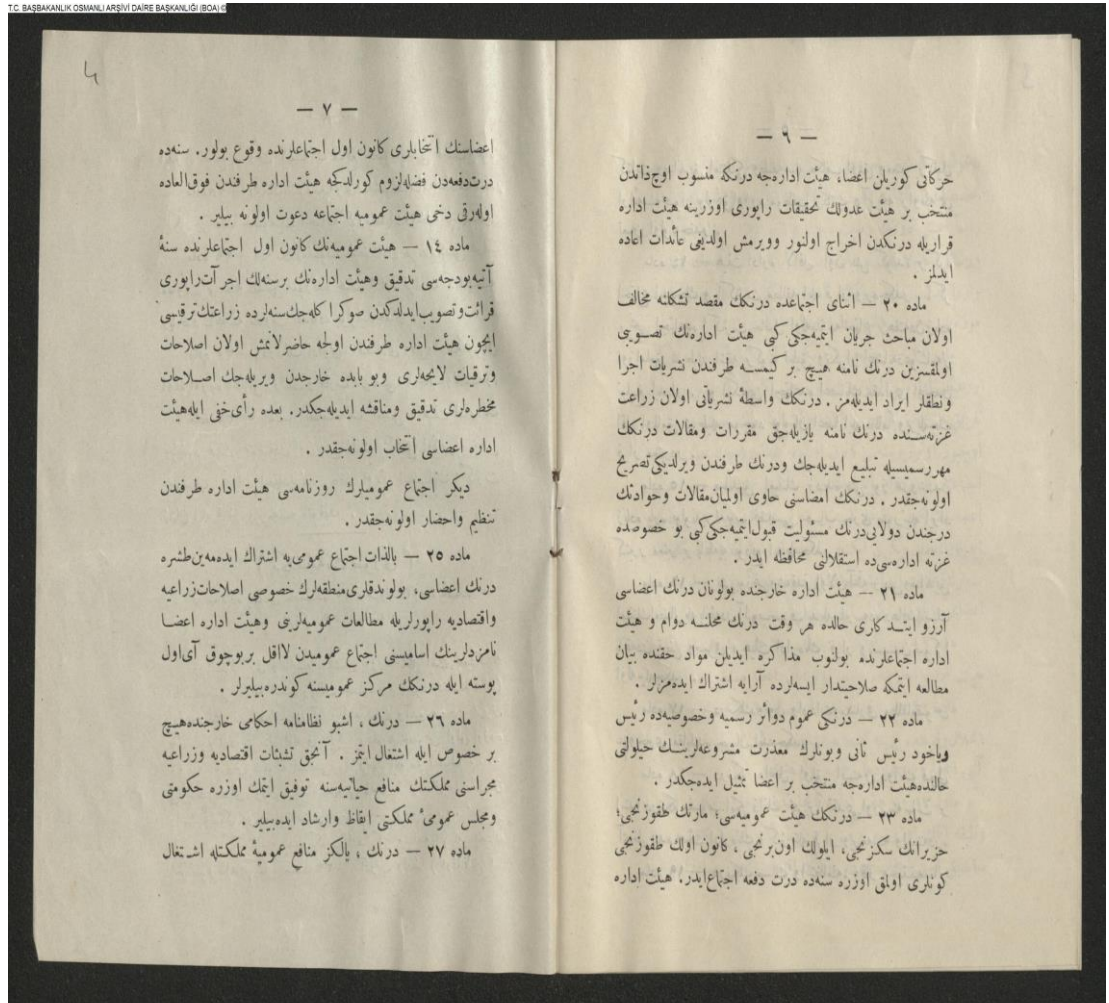 T.C. BAŞBAKANLIK OSMANLI ARŞİVİ DAİRE BAŞKANLIĞI (BOA) ©
— ٦ —
حركاتی كوریلن اعضا، هیئت اداره‌جه درنكه منسوب اوچ‌ذاتدن
منتخب بر هیئت عدولك تحقیقات راپوری اوزرینه هیئت اداره
قراریله درنكدن اخراج اولنور وویرمش اولدیغی عائدات اعاده
ایدلمز .
ماده ٢٠ — اثنای اجتماعده درنكك مقصد تشكلنه مخالف
اولان مباحث جریان ایتمیه‌جكی كبی هیئت اداره‌نك تصویبی
اولمقسزین درنك نامنه هیچ بر كیمسه طرفندن نشریات اجرا
ونطقلر ایراد ایدیله‌مز . درنكك واسطهٔ نشریاتی اولان زراعت
غزته‌سنده درنك نامنه یازیله‌جق مقررات ومقالات درنكك
مهررسمیسیله تبلیغ ایدیله‌جك ودرنك طرفندن ویرلدیكی تصریح
اولونه‌جقدر . درنكك امضاسنی حاوی اولمیان‌مقالات وحوادثك
درجندن دولایی‌درنك مسئولیت قبول‌ایتمیه‌جكی‌كبی بو خصوصده
غزته اداره‌سی‌ده استقلالنی محافظه ایدر .
ماده ٢١ — هیئت اداره خارجنده بولونان درنك اعضاسی
آرزو ایتدكلری حالده هر وقت درنك مجلسنه دوام و هیئت
اداره اجتماعلرنده بولنوب مذاكره ایدیلن مواد حقنده بیان
مطالعه ایتمكه صلاحیتدار ایسه‌لرده آرایه اشتراك ایده‌مزلر .
ماده ٢٢ — درنكی عموم دوائر رسمیه وخصوصیه‌ده رئیس
ویاخود رئیس ثانی وبونلرك معذرت مشروعه‌لرینك حیلولتی
حالنده‌هیئت اداره‌جه منتخب بر اعضا تمثیل ایده‌جكدر .
ماده ٢٣ — درنكك هیئت عمومیه‌سی؛ مارتك طقوزنجی؛
حزیرانك سكزنجی، ایلولك اون‌برنجی ، كانون اولك طقوزنجی
كونلری اولمق اوزره سنه‌ده درت دفعه اجتماع‌ایدر. هیئت اداره
4
— ٧ —
اعضاسنك انتخابلری كانون اول اجتماعلرنده وقوع بولور. سنه‌ده
درت‌دفعه‌دن فضله‌لزوم كورلدكجه هیئت اداره طرفندن فوق‌العاده
اوله‌رق دخی هیئت عمومیه اجتماعه دعوت اولونه بیلیر .
ماده ١٤ — هیئت عمومیه‌نك كانون اول اجتماعلرنده سنهٔ
آتیه‌بودجه‌سی تدقیق وهیئت اداره‌نك برسنه‌لك اجرآت‌راپوری
قرائت‌وتصویب‌ایدلدكدن صوكرا كله‌جك‌سنه‌لرده زراعتك‌ترقیسی
ایچون هیئت اداره طرفندن اولجه حاضرلانمش اولان اصلاحات
وترقیات لایحه‌لری وبو بابده خارجدن ویریله‌جك اصلاحات
مخطره‌لری تدقیق ومناقشه ایدیله‌جكدر. بعده رأی‌خفی ایله‌هیئت
اداره اعضاسی انتخاب اولونه‌جقدر .
دیكر اجتماع عمومیلرك روزنامه‌سی هیئت اداره طرفندن
تنظیم واحضار اولونه‌جقدر .
ماده ٢٥ — بالذات اجتماع عمومی‌یه اشتراك ایده‌مه‌ین‌طشره
درنك اعضاسی، بولوندقلری‌منطقه‌لرك خصوصی اصلاحات‌زراعیه
واقتصادیه راپورلریله مطالعات عمومیه‌لرینی وهیئت اداره اعضا
نامزدلرینك اسامیسنی اجتماع عمومیدن لااقل بربوچوق آی‌اول
پوسته ایله درنكك مركز عمومیسنه كوندره‌بیلیرلر .
ماده ٢٦ — درنك ، اشبو نظامنامه احكامی خارجنده‌هیچ
بر خصوص ایله اشتغال ایتمز . آنجق تشبثات اقتصادیه وزراعیه
مجراسنی مملكتك منافع حیاتیه‌سنه توفیق ایتمك اوزره حكومتی
ومجلس عمومیٔ مملكتی ایقاظ وارشاد ایده‌بیلیر .
ماده ٢٧ — درنك ، یالكز منافع عمومیهٔ مملكتله اشتغال